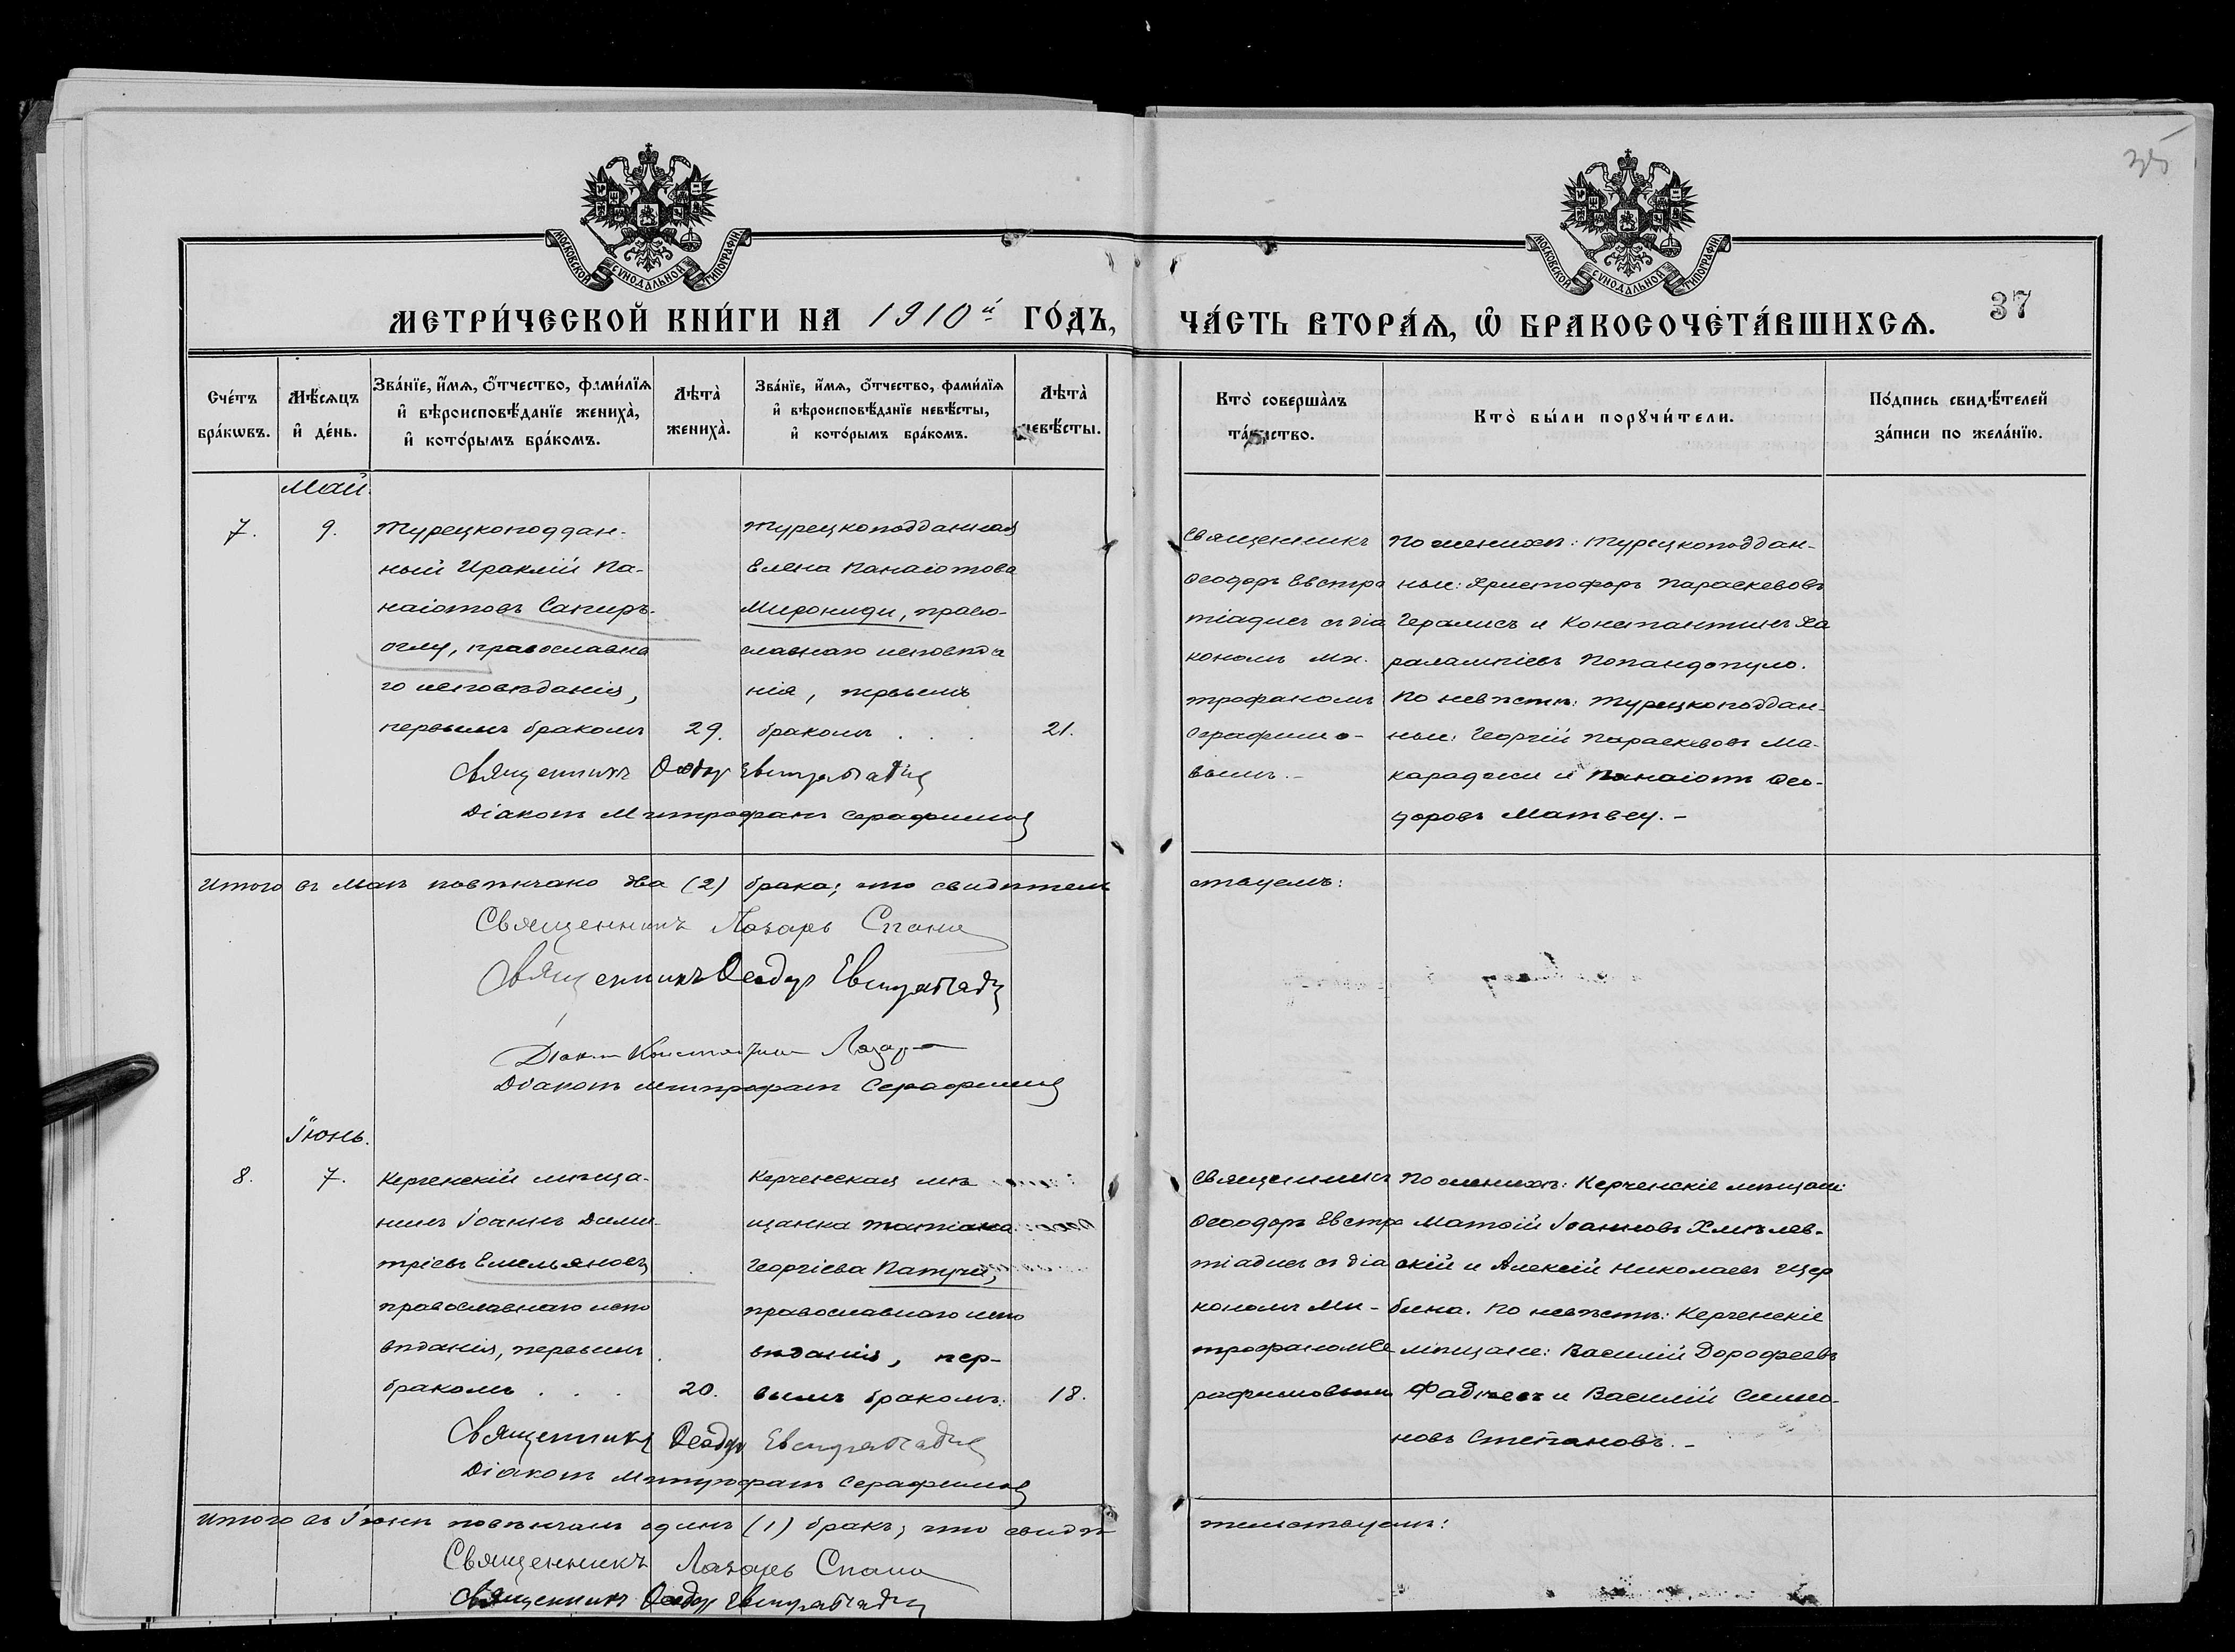 35
МОСКОВСКОЙ СУНОДАЛЬНОЙ ТИПОГРАФІИ
МОСКОВСКОЙ СУНОДАЛЬНОЙ ТИПОГРАФІИ
МЕТРИ́ЧЕСКОЙ КНИ́ГИ НА 1910й ГО́ДЪ,
ЧА́СТЬ ВТОРА́Ѧ, Ѡ҆ БРАКОСОЧЕТА́ВШИХСѦ.
37
Сче́тъ
бра́кѡвъ.
Мѣ́сѧцъ
и҆ де́нь.
Зва́нїе, и҆́мѧ, ѻ҆́тчество, фами́лїѧ
и҆ вѣроисповѣ́данїе жениха̀,
и҆ кото́рымъ бра́комъ.
Лѣта̀
жениха̀.
Зва́нїе, и҆́мѧ, ѻ҆́тчество, фами́лїѧ
и҆ вѣроисповѣ́данїе невѣ́сты,
и҆ кото́рымъ бра́комъ.
Лѣта̀
невѣ́сты.
Кто̀ соверша́лъ
та́инство.
Кто̀ бы́ли порꙋчи́тели.
По́дпись свидѣ́телей
за́писи по жела́нїю.
Май.
7.
9.
Турецкоподдан-
ный Ираклій Па-
наіотовъ Сакиръ-
оглу, православна
го исповѣданія,
первымъ бракомъ
29.
Турецкоподданная
Елена Панаіотова
Мирониди, право-
славнаго исповѣда
нія, первымъ
бракомъ . . .
21.
Священникъ
Ѳеодоръ Евстра
тіадисъ съ діа
кономъ Ми-
трофаномъ
Серафимо-
вымъ.-
По женихѣ: турецкоподдан-
ные: Христофоръ Параскевовъ
Герамисъ и Константинъ Ха
ралампіевъ Попандопуло.
По невѣстѣ: турецкоподдан-
ные: Георгій Параскевовъ Ма-
караджи и Панаіотъ Ѳео-
доровъ Матвеу.-
Священникъ Ѳеодоръ Евстратіадис
Діаконъ Митрофанъ Серафимовъ
Итого въ Маѣ повѣнчано два (2) брака; что свидѣтель
ствуемъ:
Священникъ Лазарь Спани
Священникъ Ѳеодоръ Евстратіадис
Діаконъ Константинъ
Діаконъ Митрофанъ Серафимовъ
Іюнь.
8.
7.
Керченскій мѣща-
нинъ Іоаннъ Дими-
тріевъ Емельяновъ,
православнаго испо
вѣданія, первымъ
бракомъ . . .
20.
Керченская мѣ
щанка Татіана
Георгіева Патуча,
православнаго испо
вѣданія, пер-
вымъ бракомъ.
18.
Священникъ
Ѳеодоръ Евстра
тіадисъ съ діа
кономъ Ми-
трофаномъ Се
рафимовымъ
По женихѣ: Керченскіе мѣщане:
Матѳій Іоанновъ Хмѣлев-
скій и Алексій Николаевъ Щер
бина. По невѣстѣ: Керченскіе
мѣщане: Василій Дорофеевъ
Фадѣевъ и Василій Симо-
новъ Степановъ.-
Священникъ Ѳеодоръ Евстратіадис
Діаконъ Митрофанъ Серафимовъ
Итого въ Іюнѣ повѣнчанъ одинъ (1) бракъ; что свидѣ
тельствуемъ:
Священникъ Лазарь Спани
Священникъ Ѳеодоръ Евстратіадис